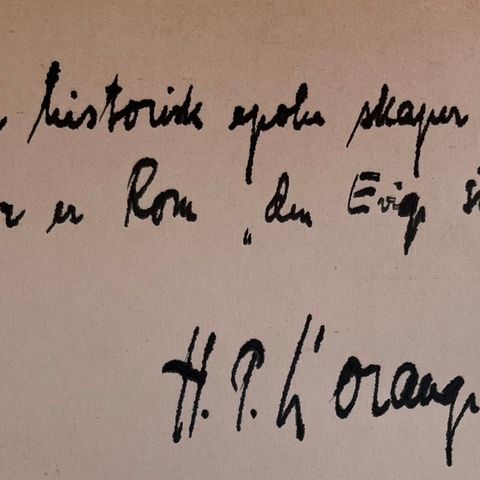 historisk epoke skaper
er Rom „den Evige
H. P. L'Orange